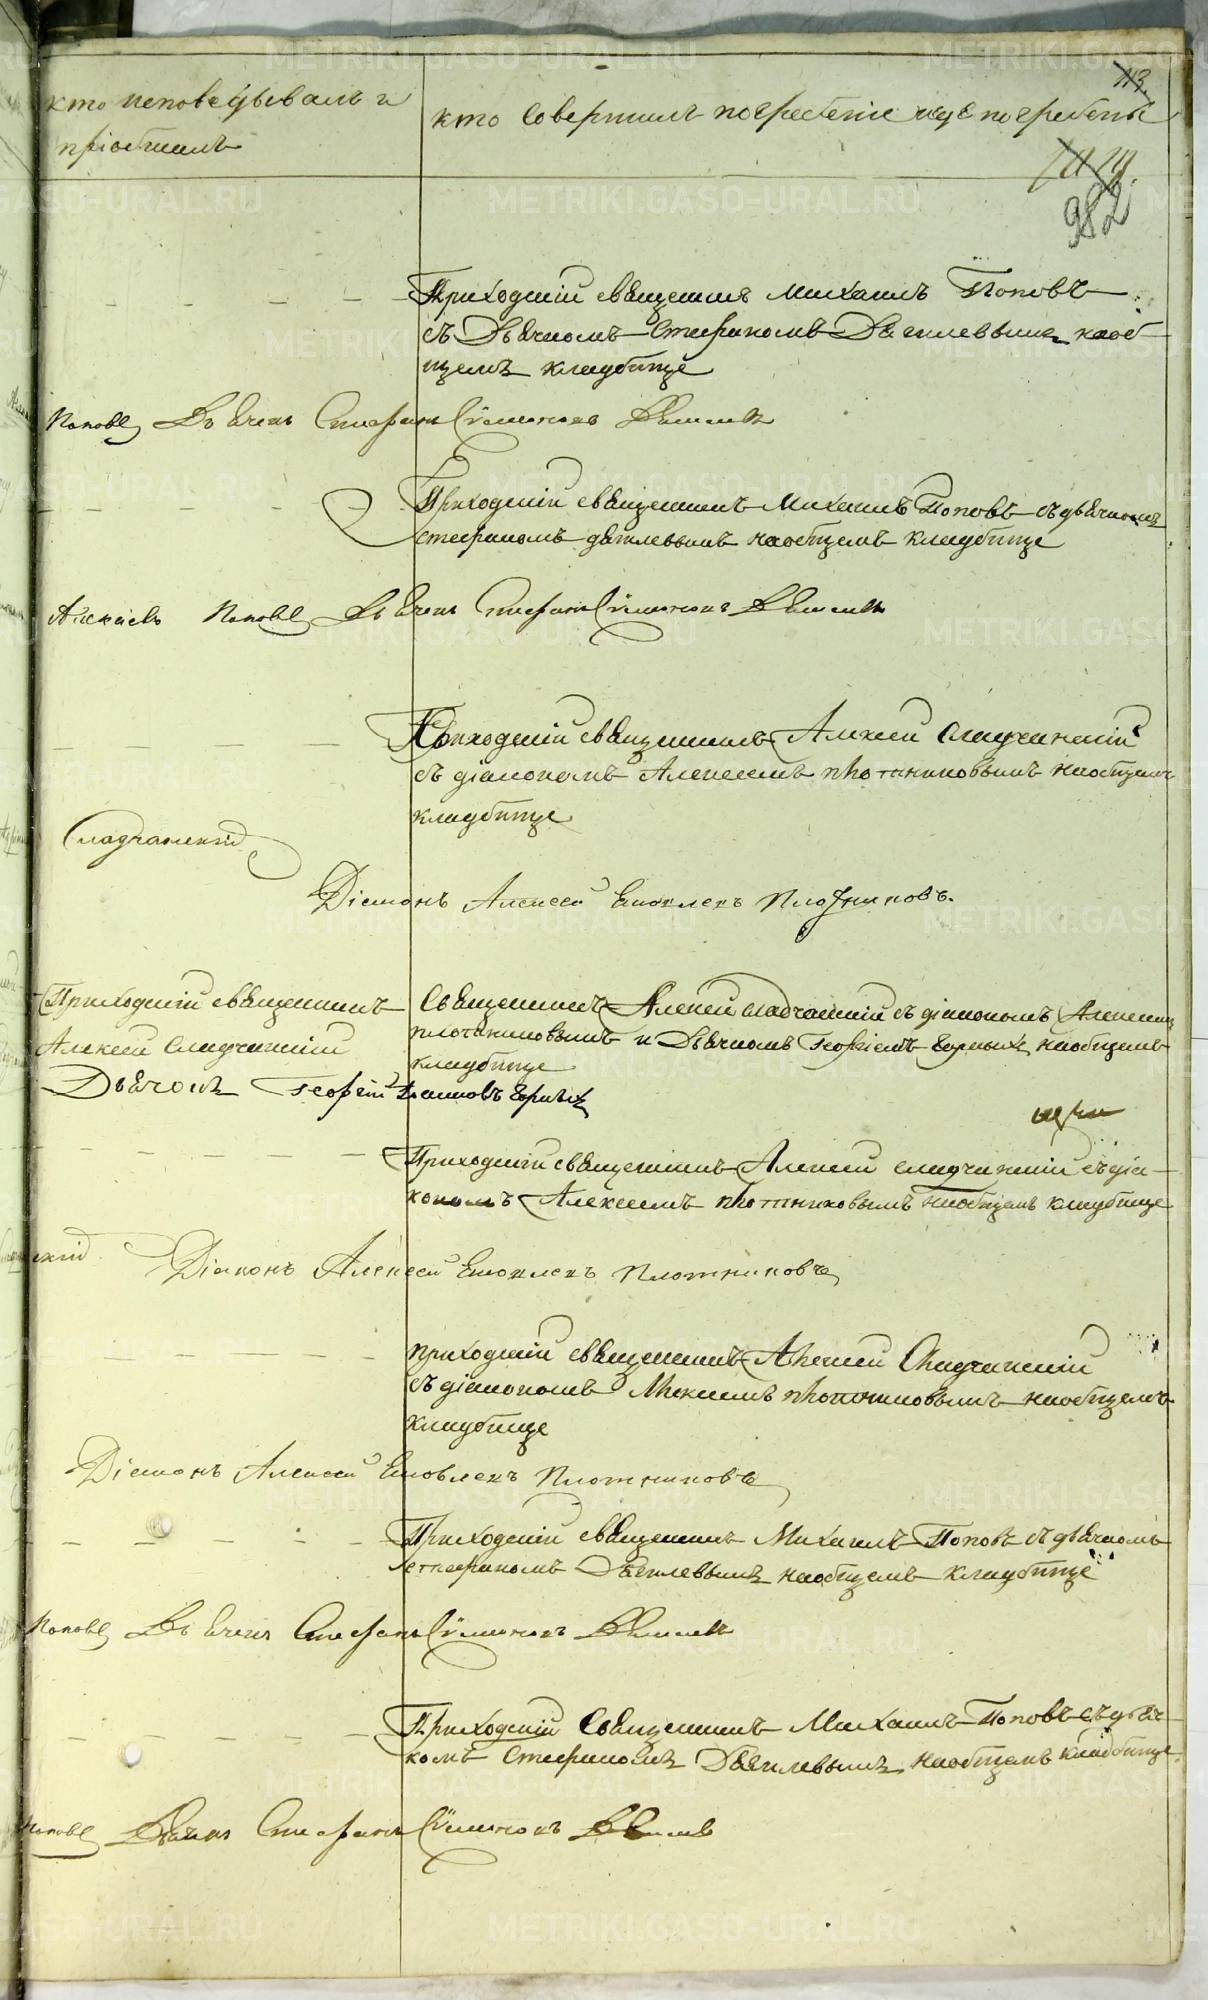 113.
кто исповѣдывалъ и
пріобщалъ
кто совершилъ погребеніе и гдѣ погребены
982
Приходскій священникъ Михаилъ Поповъ
съ Дьячкомъ Стефаномъ на об-
щемъ кладбище
Поповъ Дьячекъ Стефанъ Симоновъ
Приходскій священникъ Михаилъ Поповъ съ дьячкомъ
Стефаномъ на общемъ кладбище
Алексѣевъ Поповъ Дьячекъ Стефанъ Симоновъ
Приходскій священникъ Алексей Сладчанскій
съ діакономъ Алексеемъ плотниковымъ на общемъ
кладбище
Сладчанскій
Діаконъ Алексей Яковлевъ Плотниковъ.
Приходскій священникъ
Алексей Сладчанскій
Дьячокъ Георгій
Священникъ Алексей сладчанскій съ діакономъ Алексеемъ
плотниковымъ и Дьячкомъ Георгіемъ на общемъ
кладбище
Приходскій священникъ Алексей сладчанскій съ діа-
кономъ Алексеемъ плотниковымъ на общемъ кладбище
Діаконъ Алексей Яковлевъ Плотниковъ
приходскій священникъ Алексей Сладчанскій
съ діакономъ Алексеемъ плотниковымъ на общемъ
кладбище
Діаконъ Алексей Яковлевъ Плотниковъ
Приходскій священникъ Михаилъ Поповъ съ дьячкомъ
стефаномъ на общемъ кладбище
Поповъ Дьячекъ Стефанъ Симоновъ
Приходскій Священникъ Михаилъ Поповъ съ дьяч-
комъ Стефаномъ на общемъ кладбище.
Поповъ Дьячекъ Стефанъ Симоновъ
METRIKI.GASO-URAL.RU